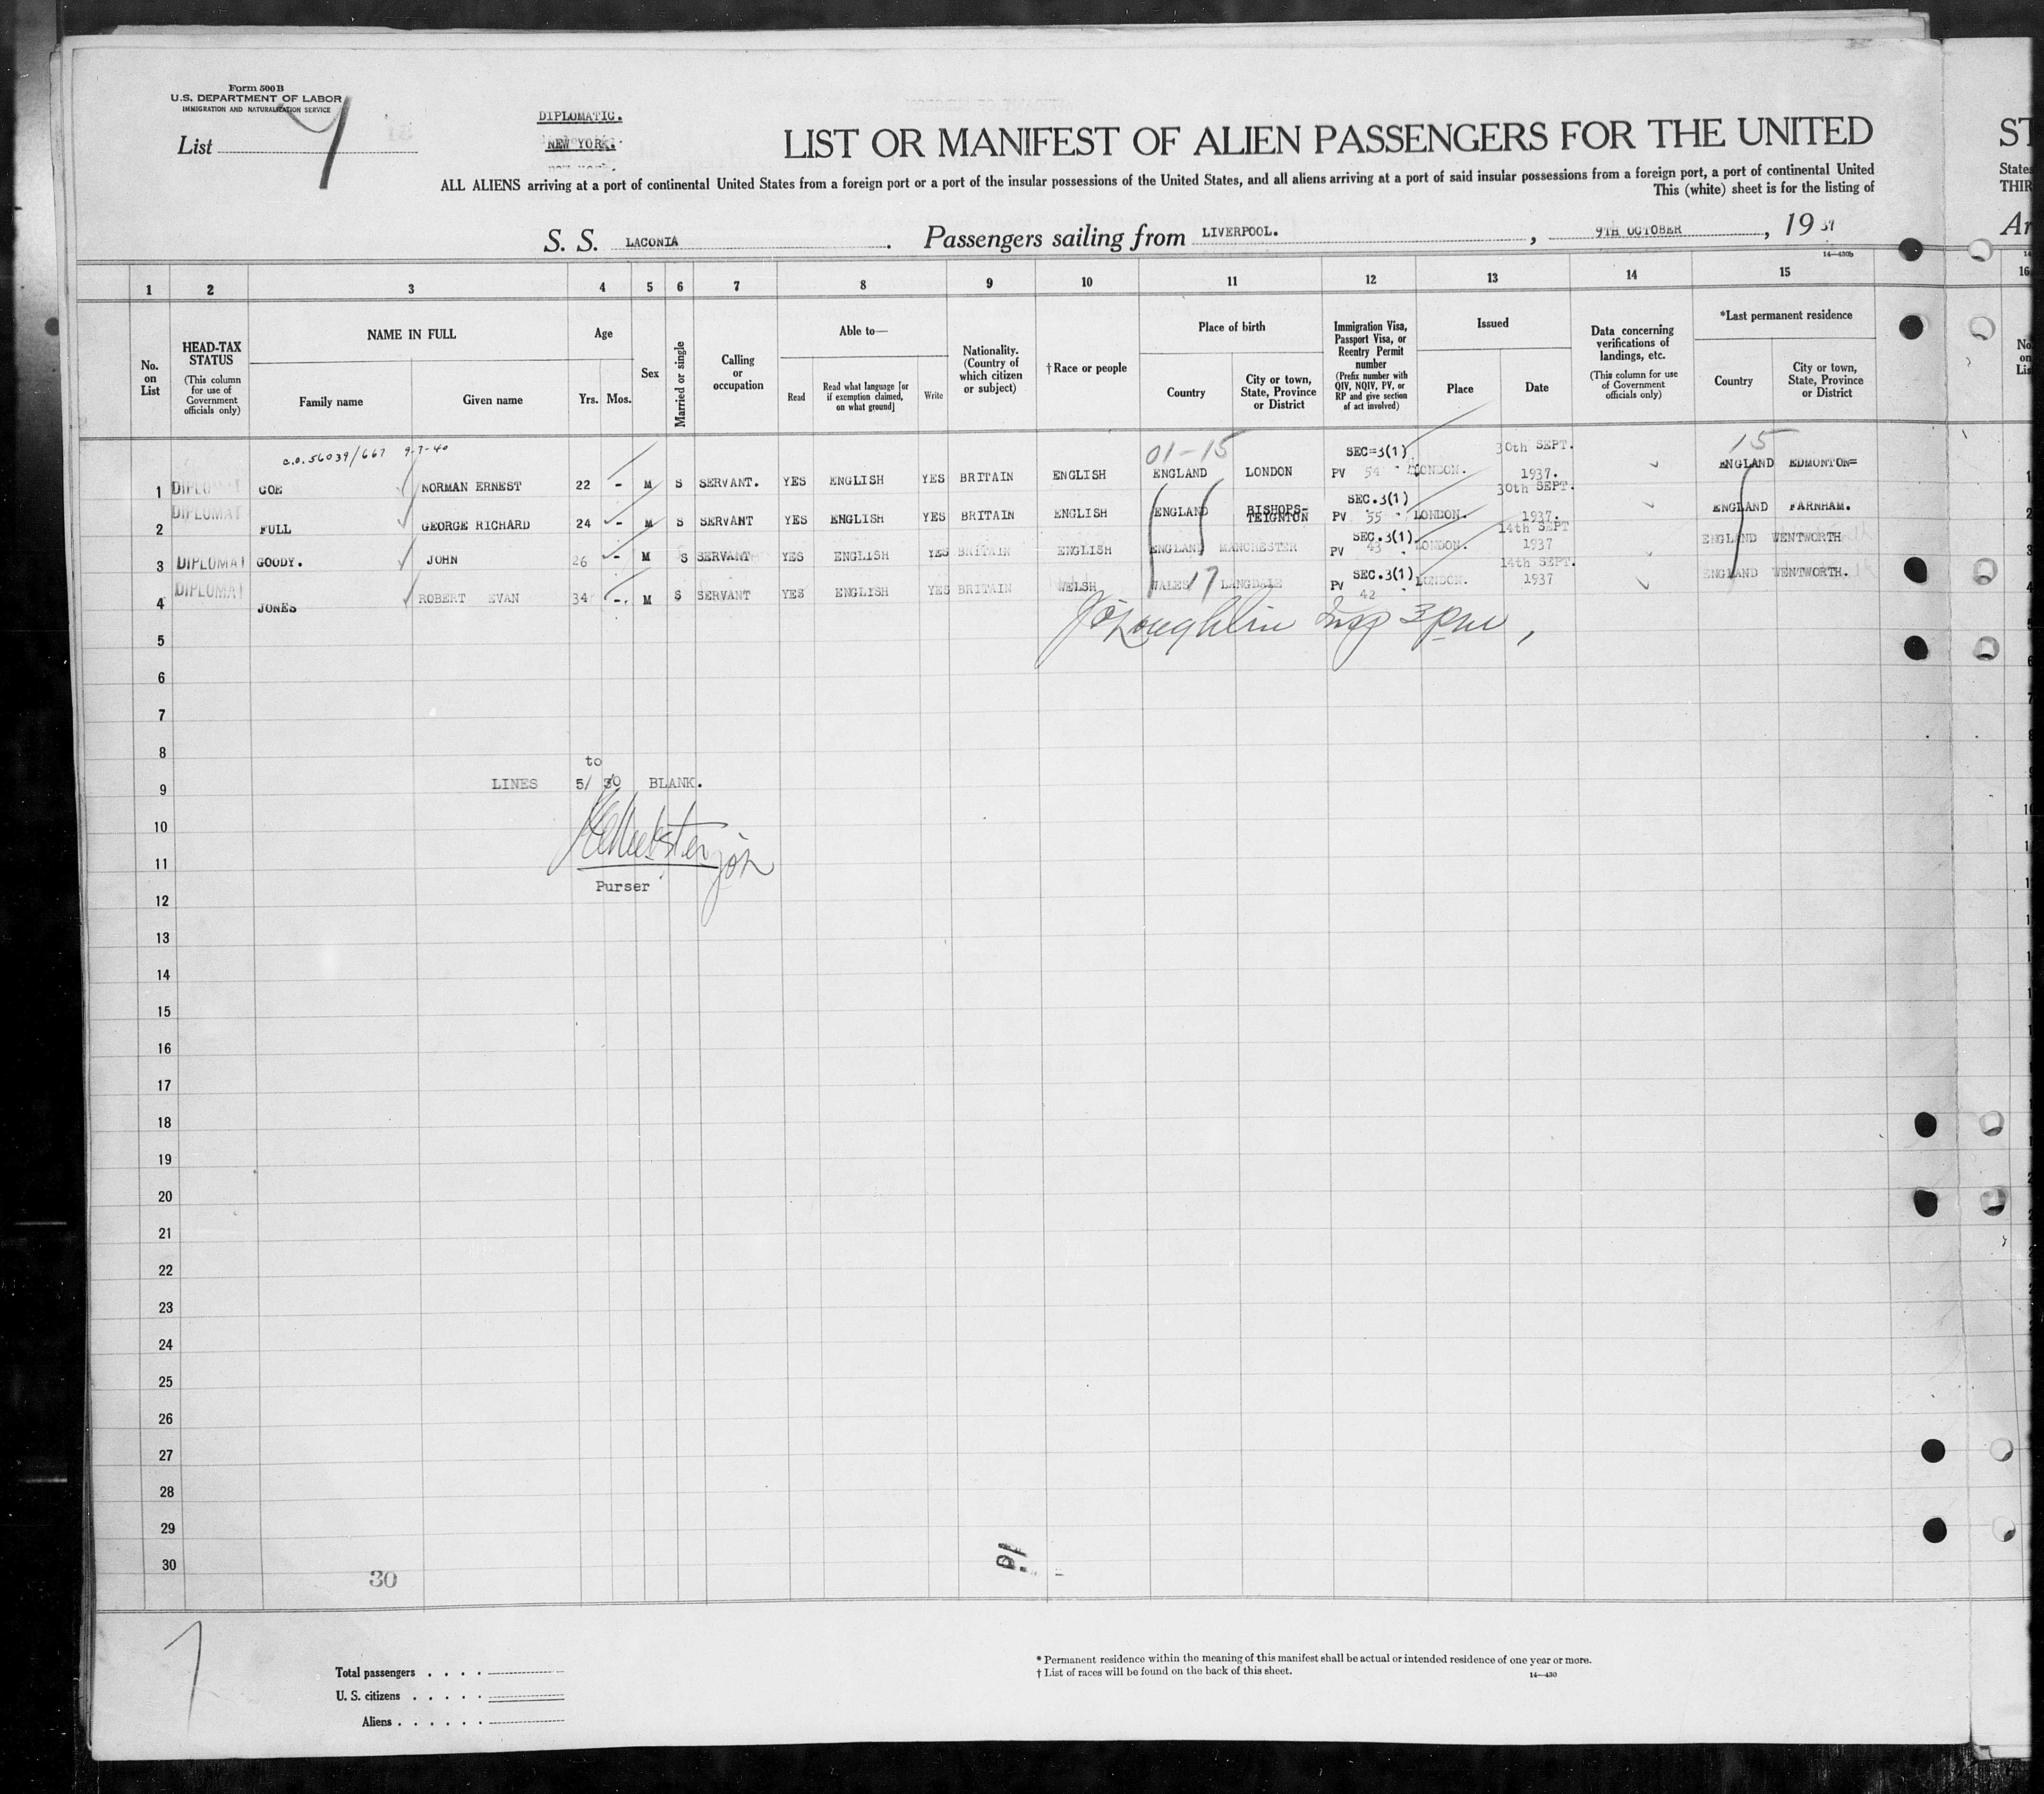 Form 500B
U.S. DEPARTMENT OF LABOR
IMMIGRATION AND NATURALIZATION SERVICE
List
DIPLOMATIC.
NEW YORK.
LIST OR MANIFEST OF ALIEN PASSENGERS FOR THE UNITED
ST
ALL ALIENS arriving at a port of continental United States from a foreign port or a port of the insular possessions of the United States, and all aliens arriving at a port of said insular possessions from a foreign port, a port of continental United
States
This (white) sheet is for the listing of
THIR
S. S. LACONIA. Passengers sailing from LIVERPOOL., 9TH OCTOBER, 19 37
Ar
14—430b
1 2 3 4 5 6 7 8 9 10 11 12 13 14 15 16
No. on List
HEAD-TAX STATUS
(This column for use of Government officials only)
NAME IN FULL
Family name
Given name
Age
Yrs. Mos.
Sex
Married or single
Calling or occupation
Able to—
Read
Read what language [or if exemption claimed, on what ground]
Write
Nationality. (Country of which citizen or subject)
†Race or people
Place of birth
Country
City or town, State, Province or District
Immigration Visa, Passport Visa, or Reentry Permit number
(Prefix number with QIV, NQIV, PV, or RP and give section of act involved)
Issued
Place
Date
Data concerning verifications of landings, etc.
(This column for use of Government officials only)
*Last permanent residence
Country
City or town, State, Province or District
c.o. 56039/667 9-7-40
01-15
15
1 DIPLOMAT GOE NORMAN ERNEST 22 - M S SERVANT. YES ENGLISH YES BRITAIN ENGLISH ENGLAND LONDON SEC=3(1) PV 54 LONDON. 30th SEPT. 1937. ENGLAND EDMONTON=
2 DIPLOMAT FULL GEORGE RICHARD 24 - M S SERVANT YES ENGLISH YES BRITAIN ENGLISH ENGLAND BISHOPS-TEIGNTON SEC.3(1) PV 55 LONDON. 30th SEPT. 1937. ENGLAND FARNHAM.
3 DIPLOMAT GOODY. JOHN 26 - M S SERVANT YES ENGLISH YES BRITAIN ENGLISH ENGLAND MANCHESTER SEC.3(1) PV 43 LONDON. 14th SEPT 1937 ENGLAND WENTWORTH
4 DIPLOMAT JONES ROBERT EVAN 34 -. M S SERVANT YES ENGLISH YES BRITAIN WELSH WALES 17 LANGDALE SEC.3(1) PV 42 LONDON. 14th SEPT. 1937 ENGLAND WENTWORTH.
5
6
7
8
to
9 LINES 5/ 30 BLANK.
10
11
Purser
12
13
14
15
16
17
18
19
20
21
22
23
24
25
26
27
28
29
30
30
Total passengers
U. S. citizens
Aliens
* Permanent residence within the meaning of this manifest shall be actual or intended residence of one year or more.
† List of races will be found on the back of this sheet.
14—430